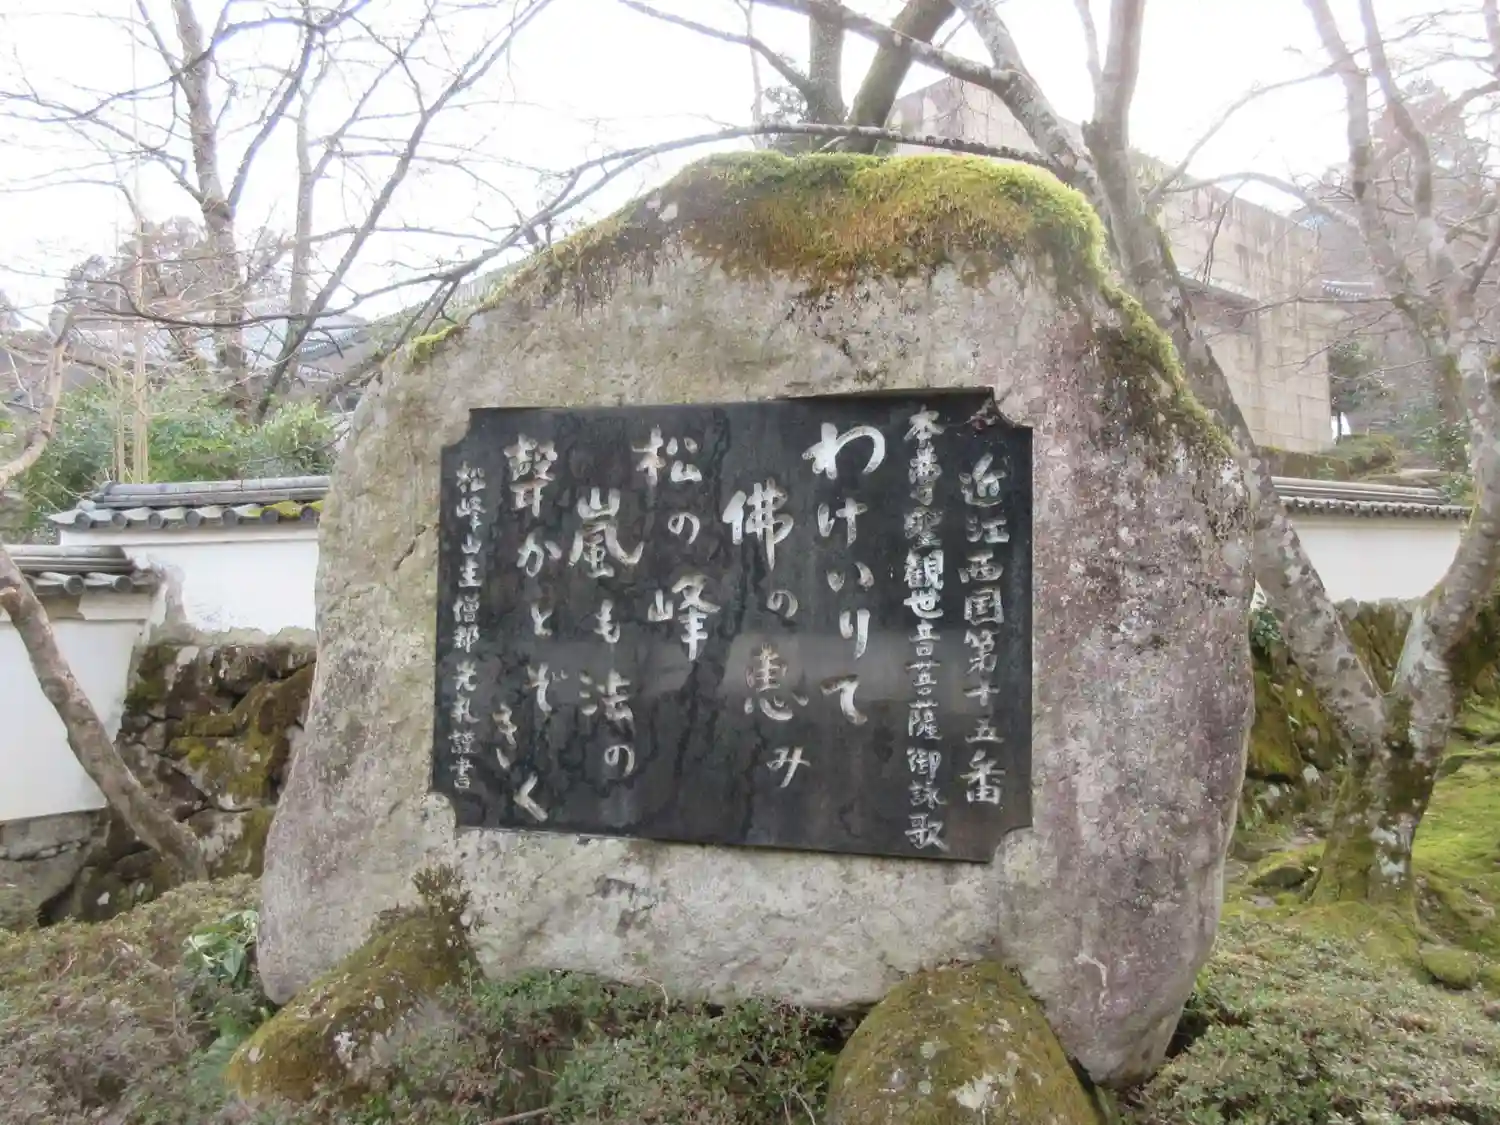 近江西国第十五番
本尊聖観世音菩薩御詠歌
わけいりて
佛の恵み
松の峰
嵐も法の
聲かとぞきく
松峰山主僧都光礼謹書